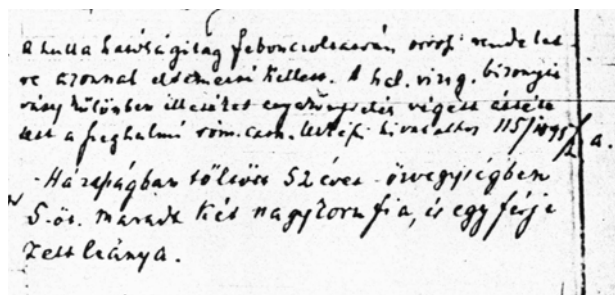 a hulla hatóságilag felboncoltatván orvosi rendelet
re azonnal eltemetni kellett. A hal. vizsg. bizonyít
vány különben illetéket egyezményezés végett áttéte
tett a füghalmi róm. cath. lelkészi hivatalhoz 115/1895/a.
- Házasságban töltött 52 évet - özvegységben
5-öt. maradt két nagykorú fia, és egy férje
zett leánya.